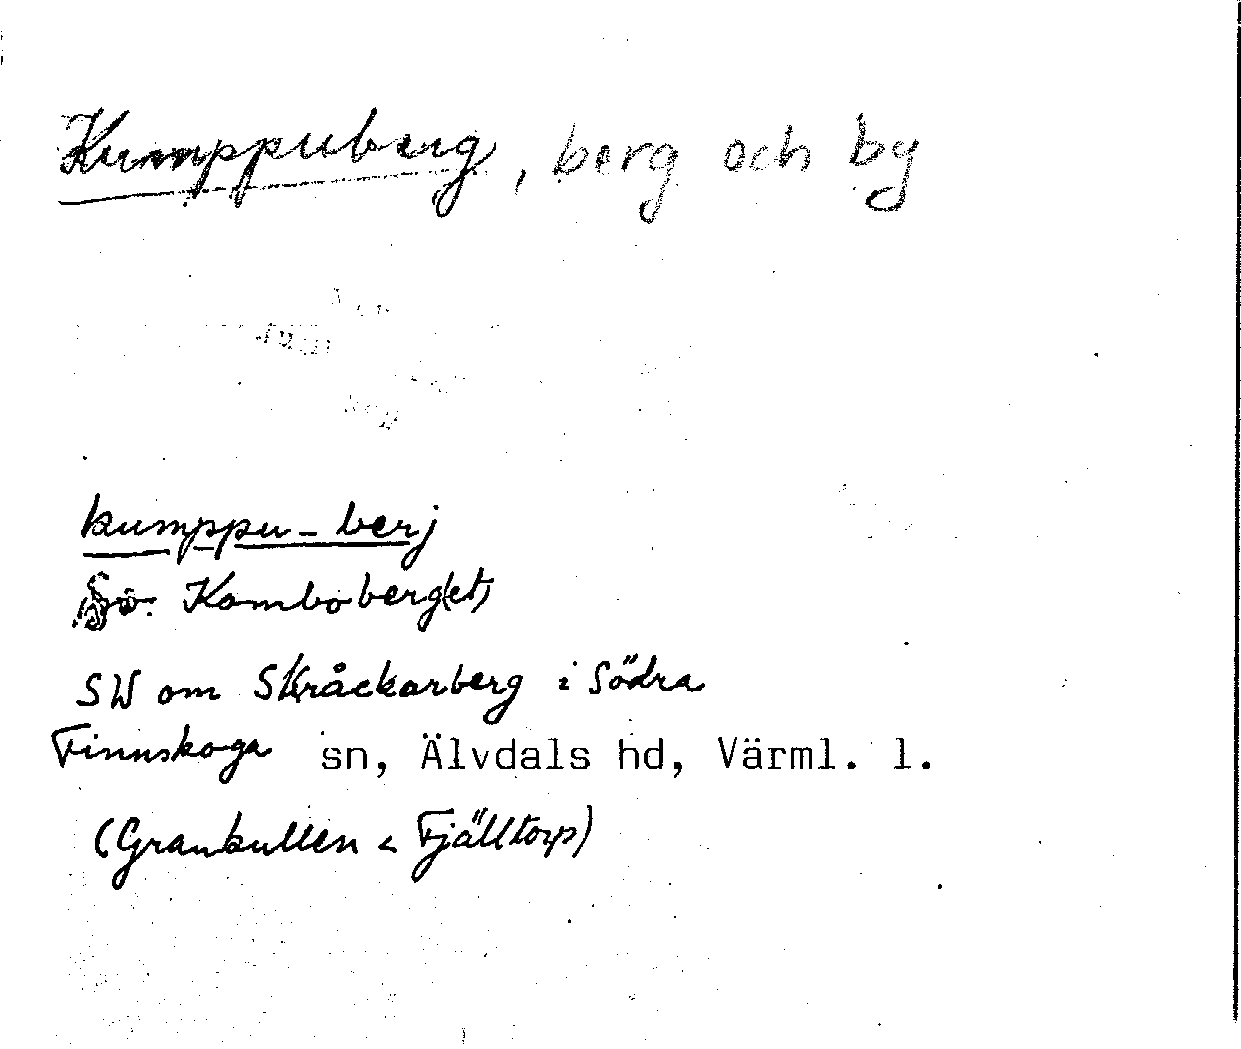 Kumppuberg, berg och by
kumppu-berj
Komboberg(et)
SW om Skråckarberg i Södra
Finnskoga sn, Älvdals hd, Värml. l.
(Grankullen < Fjälltorp)